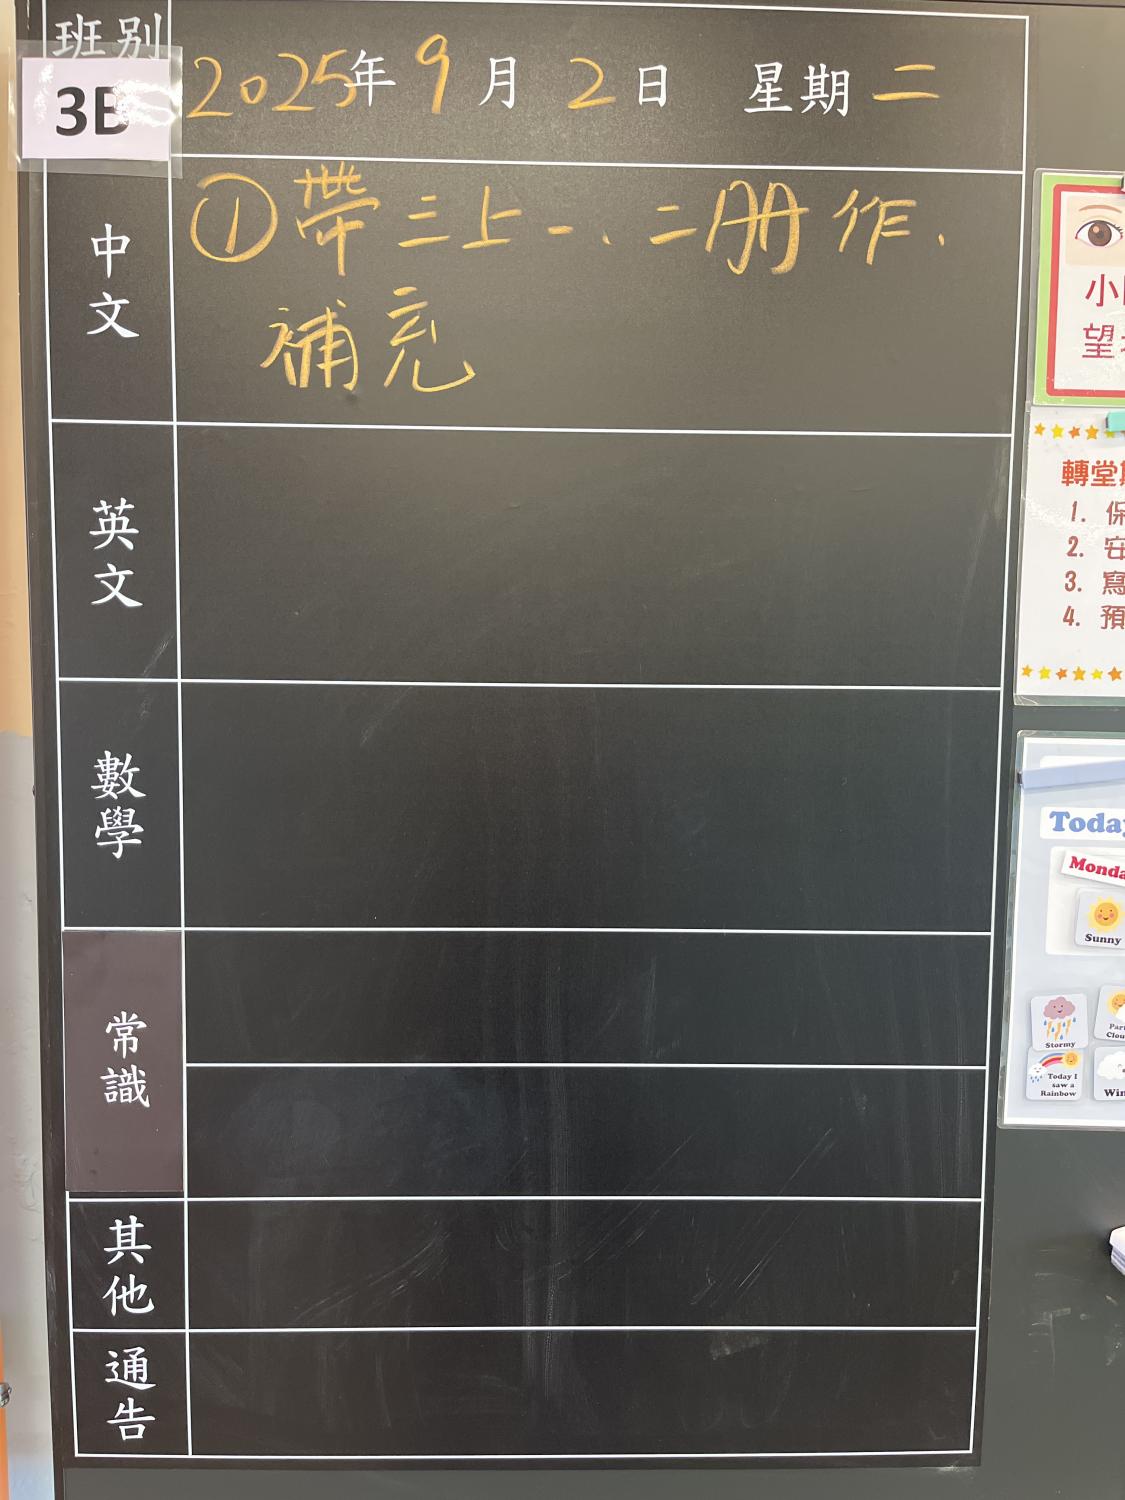 班別
3B
2025年 9月 2日 星期二
中文
①帶三上一、二册作、
補充
英文
數學
常識
其他
通告
小
望
轉堂
1. 保
2. 安
3. 寫
4. 預
Today
Monda
Sunny
Stormy
Part
Clou
Today I
saw a
Rainbow
Win